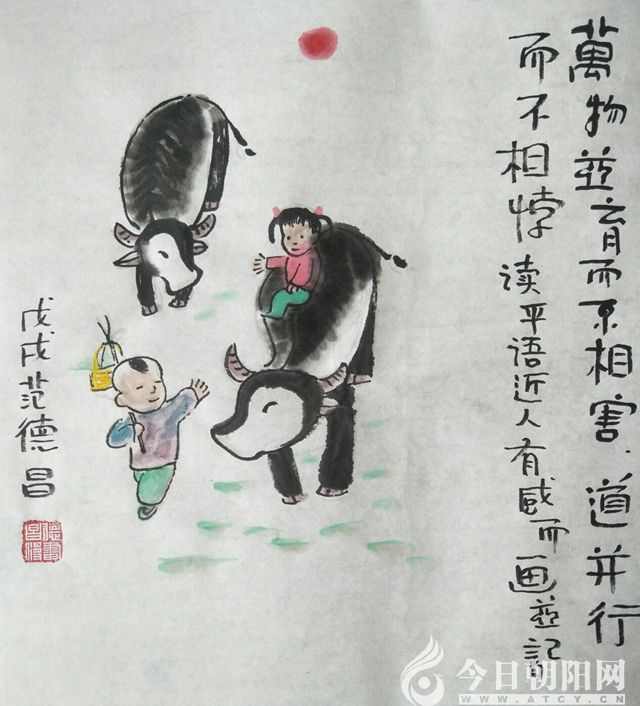 萬物並育而不相害.道并行
而不相悖读平语近人有感而画並記
戊戌范德昌
德昌
今日朝阳网
WWW.ATCY.CN